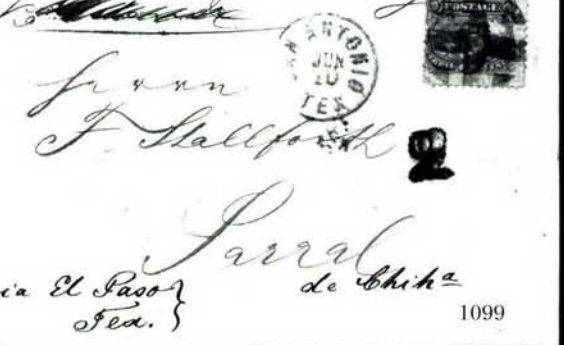 POSTAGE
SAN ANTONIO
JUN
10
TEX
Herrn
F. Stallforth
2
Parral
de Chihª
via El Paso
Tex.
1099